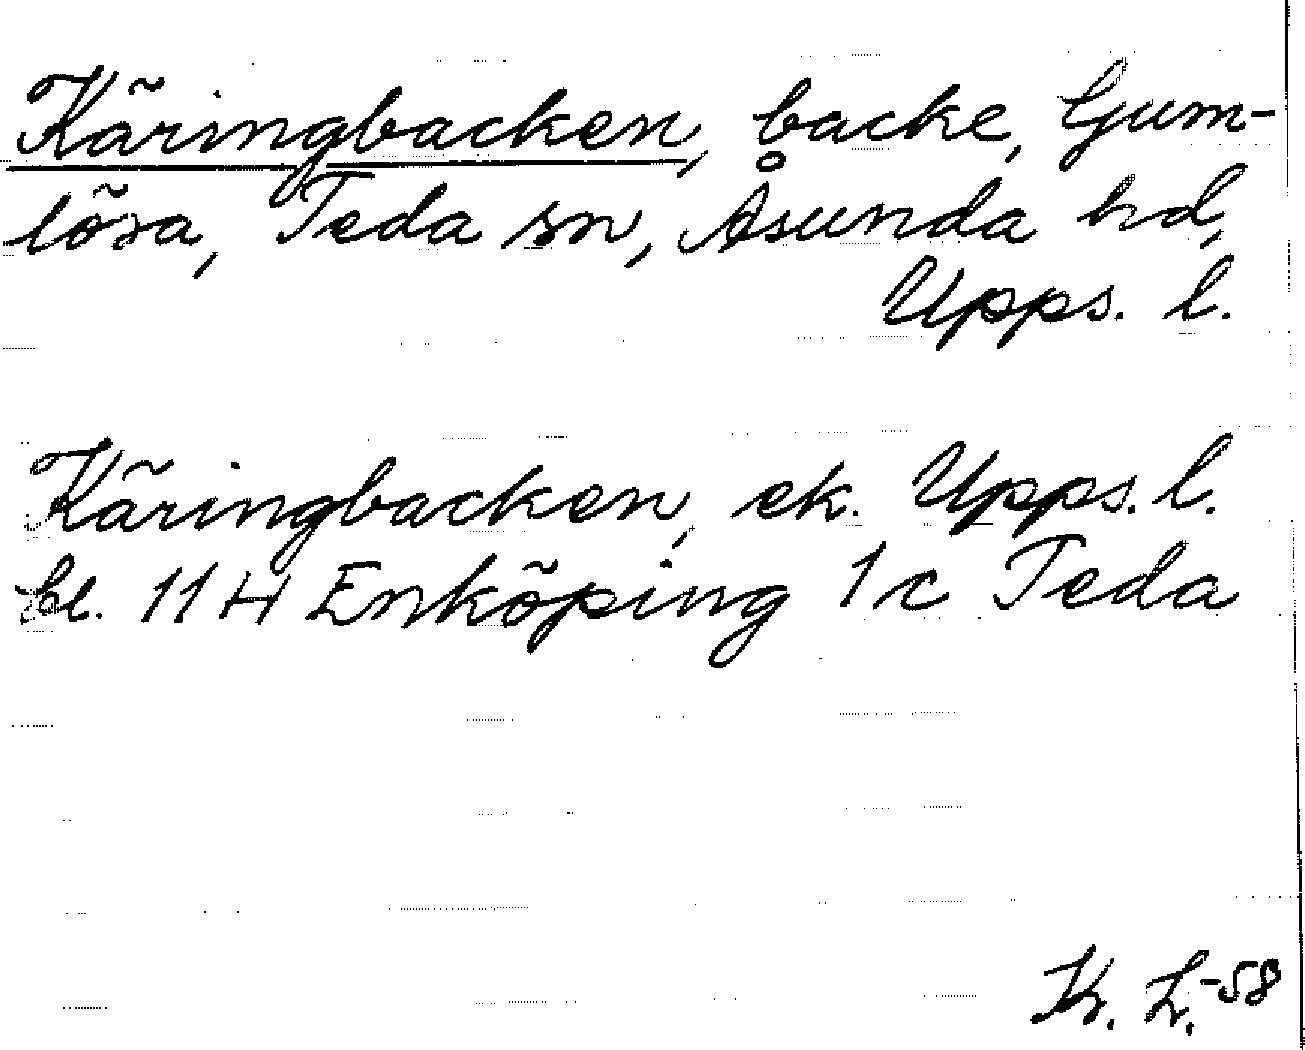 Käringbacken, backe, Gum-
lösa, Teda sn, Åsunda hd,
Upps. l.
Käringbacken, ek. Upps. l.
bl. 11 H Enköping 1 c Teda
K. L. -58